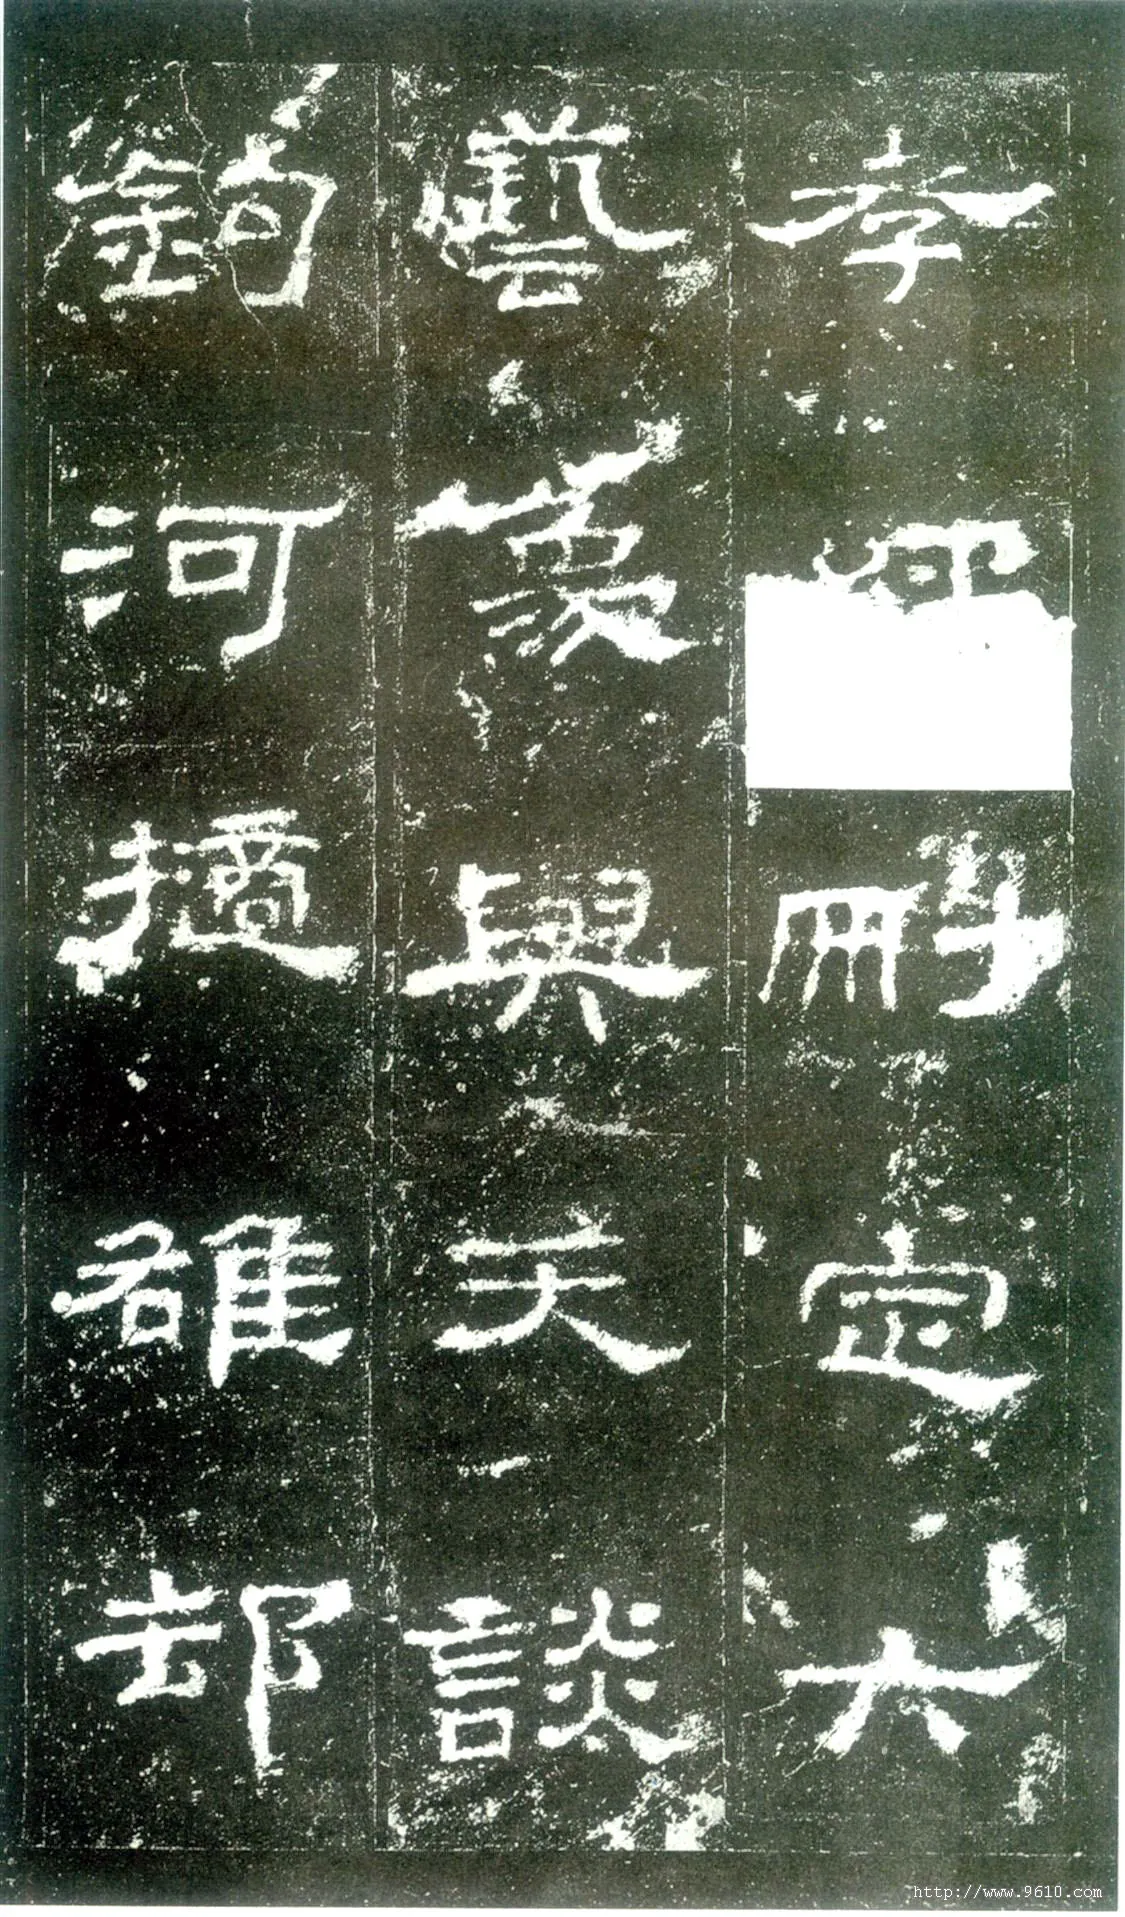 孝刪定六
藝象與天談
鉤河擿雒却
http://www.9610.com